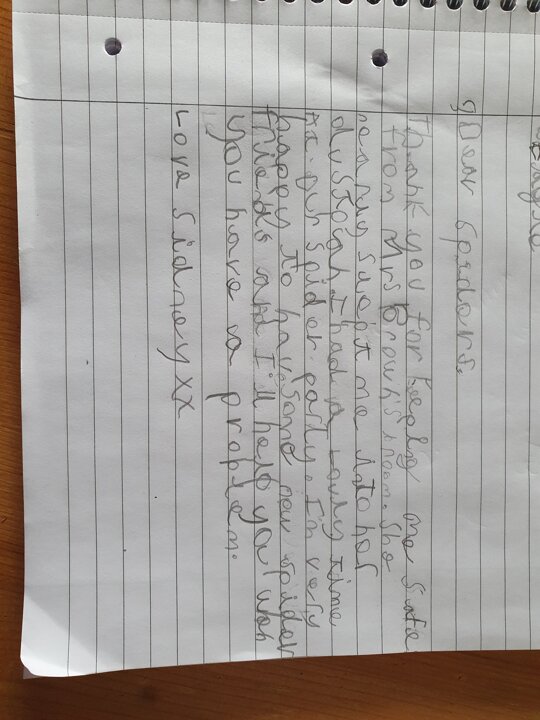 Dear Spiders,
Thank you for Keeping me Safe
from Mrs Brown's broom. She
suept me into her
dustpan I had a lovly time
at our Spider party. I'm very
happy to have some new spider
friends and I'll help you when
you have a problem.
Love Sidney xx